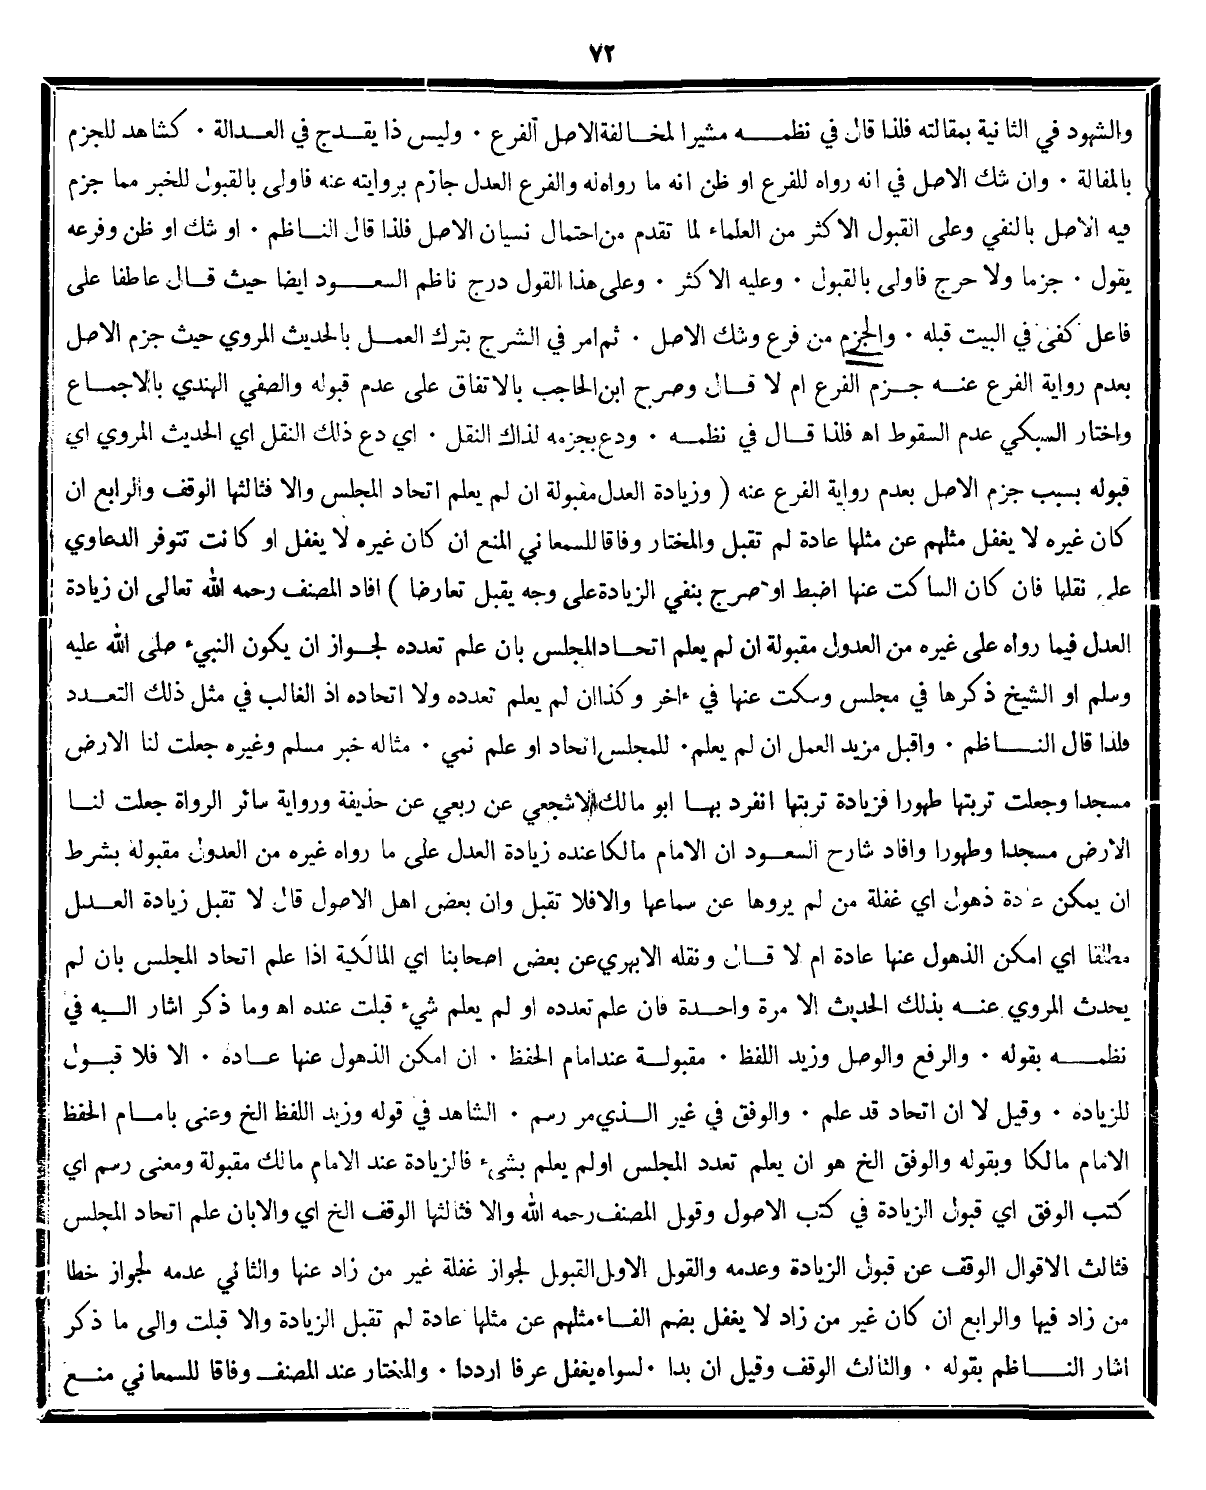 ٧٢
والشهود في الثانية بمقالته فلذا قال في نظمـــه مشيرا لمخـالفة الاصل الفرع · وليس ذا يقـدح في العـدالة · كشاهد للجزم
بالمقالة · وان شك الاصل في انه رواه للفرع او ظن انه ما رواه له والفرع العدل جازم بروايته عنه فاولى بالقبول للخبر مما جزم
فيه الاصل بالنفي وعلى القبول الاكثر من العلماء لما تقدم من احتمال نسيان الاصل فلذا قال النـاظم · او شك او ظن وفرعه
يقول · جزما ولا حرج فاولى بالقبول · وعليه الاكثر · وعلى هذا القول درج ناظم السعـود ايضا حيث قـال عاطفا على
فاعل كفى في البيت قبله · والجزم من فرع وشك الاصل · ثم امر في الشرح بترك العمـل بالحديث المروي حيث جزم الاصل
بعدم رواية الفرع عنـه جـزم الفرع ام لا قـال وصرح ابن الحاجب بالاتفاق على عدم قبوله والصفي الهندي بالاجمـاع
واختار السبكي عدم السقوط اه فلذا قـال في نظمـه · ودع بجزمه لذاك النقل · اي دع ذلك النقل اي الحديث المروي اي
قبوله بسبب جزم الاصل بعدم رواية الفرع عنه ( وزيادة العدل مقبولة ان لم يعلم اتحاد المجلس والا فثالثها الوقف والرابع ان
كان غيره لا يغفل مثلهم عن مثلها عادة لم تقبل والمختار وفاقا للسمعاني المنع ان كان غيره لا يغفل او كانت تتوفر الدعاوي
على نقلها فان كان الساكت عنها اضبط او صرح بنفي الزيادة على وجه يقبل تعارضا ) افاد المصنف رحمه الله تعالى ان زيادة
العدل فيما رواه على غيره من العدول مقبولة ان لم يعلم اتحـاد المجلس بان علم تعدده لجـواز ان يكون النبيء صلى الله عليه
وسلم او الشيخ ذكرها في مجلس وسكت عنها في ءاخر وكذا ان لم يعلم تعدده ولا اتحاده اذ الغالب في مثل ذلك التعـدد
فلذا قال النـاظم · واقبل مزيد العمل ان لم يعلم · للمجلس اتحاد او علم نمي · مثاله خبر مسلم وغيره جعلت لنا الارض
مسجدا وجعلت تربتها طهورا فزيادة تربتها انفرد بهـا ابو مالك الاشجعي عن ربعي عن حذيفة ورواية سائر الرواة جعلت لنـا
الارض مسجدا وطهورا وافاد شارح السعـود ان الامام مالكا عنده زيادة العدل على ما رواه غيره من العدول مقبولة بشرط
ان يمكن عادة ذهول اي غفلة من لم يروها عن سماعها والا فلا تقبل وان بعض اهل الاصول قال لا تقبل زيادة العـدل
مطلقا اي امكن الذهول عنها عادة ام لا قـال ونقله الابهري عن بعض اصحابنا اي المالكية اذا علم اتحاد المجلس بان لم
يحدث المروي عنـه بذلك الحديث الا مرة واحـدة فان علم تعدده او لم يعلم شيء قبلت عنده اه وما ذكر اشار اليـه في
نظمـه بقوله · والرفع والوصل وزيد اللفظ · مقبولـة عند امام الحفظ · ان امكن الذهول عنها عـاده · الا فلا قبـول
للزياده · وقيل لا ان اتحاد قد علم · والوفق في غير الـذي مر رسم · الشاهد في قوله وزيد اللفظ الخ وعنى بامـام الحفظ
الامام مالكا وبقوله والوفق الخ هو ان يعلم تعدد المجلس او لم يعلم بشيء فالزيادة عند الامام مالك مقبولة ومعنى رسم اي
كتب الوفق اي قبول الزيادة في كتب الاصول وقول المصنف رحمه الله والا فثالثها الوقف الخ اي والا بان علم اتحاد المجلس
فثالث الاقوال الوقف عن قبول الزيادة وعدمه والقول الاول القبول لجواز غفلة غير من زاد عنها والثاني عدمه لجواز خطا
من زاد فيها والرابع ان كان غير من زاد لا يغفل بضم الفـاء مثلهم عن مثلها عادة لم تقبل الزيادة والا قبلت والى ما ذكر
اشار النـاظم بقوله · والثالث الوقف وقيل ان بدا · لسواه يغفل عرفا ارددا · والمختار عند المصنف وفاقا للسمعاني منـع